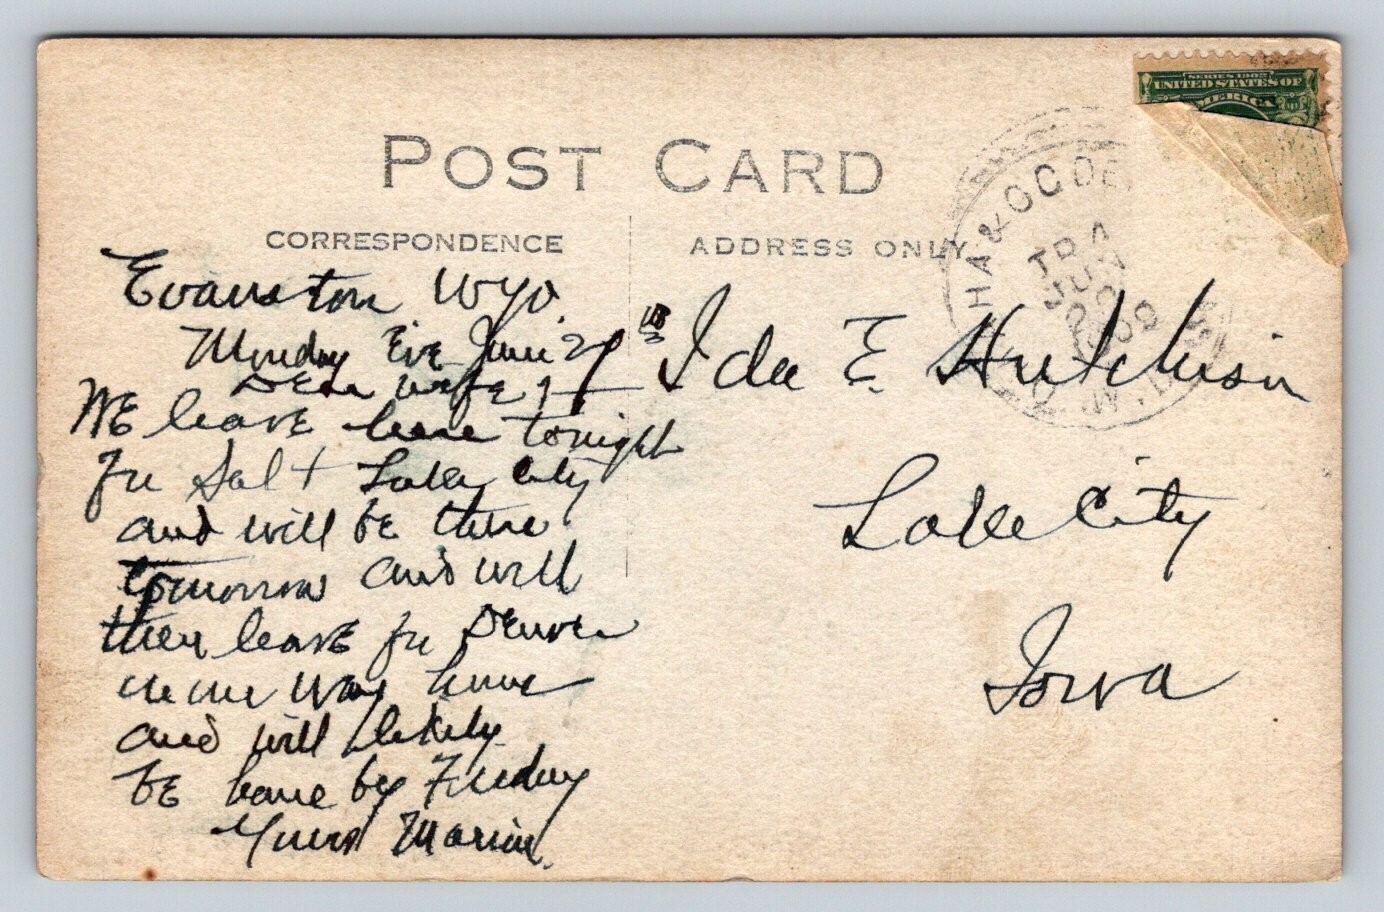 SERIES 1902
UNITED STATES OF
AMERICA
POST CARD
CORRESPONDENCE
ADDRESS ONLY
HA & OGDE
TR
Evanston Wyo.
Monday Eve June
Dear wife
WE leave here tonight
for Salt Lake City
and will be there
tomorrow and will
then leave for Denver
on our way home
and will likely
be home by Friday
Yours Marion
Ida E. Hutchison
Lake City
Iowa